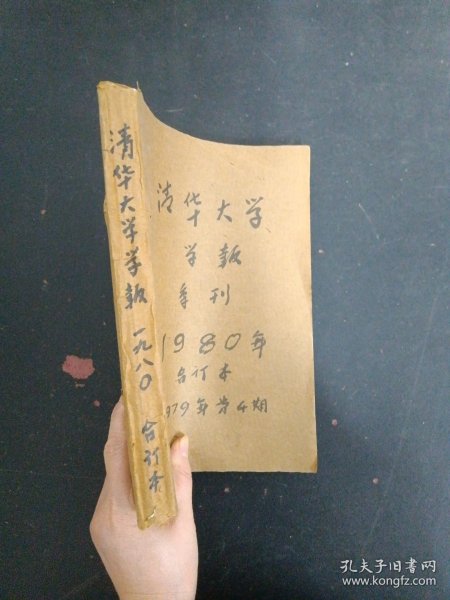 清华大学学报 一九八〇 合订本
清华大学
学报
季刊
1980年
合订本
1979年第4期
孔夫子旧书网
www.kongfz.com